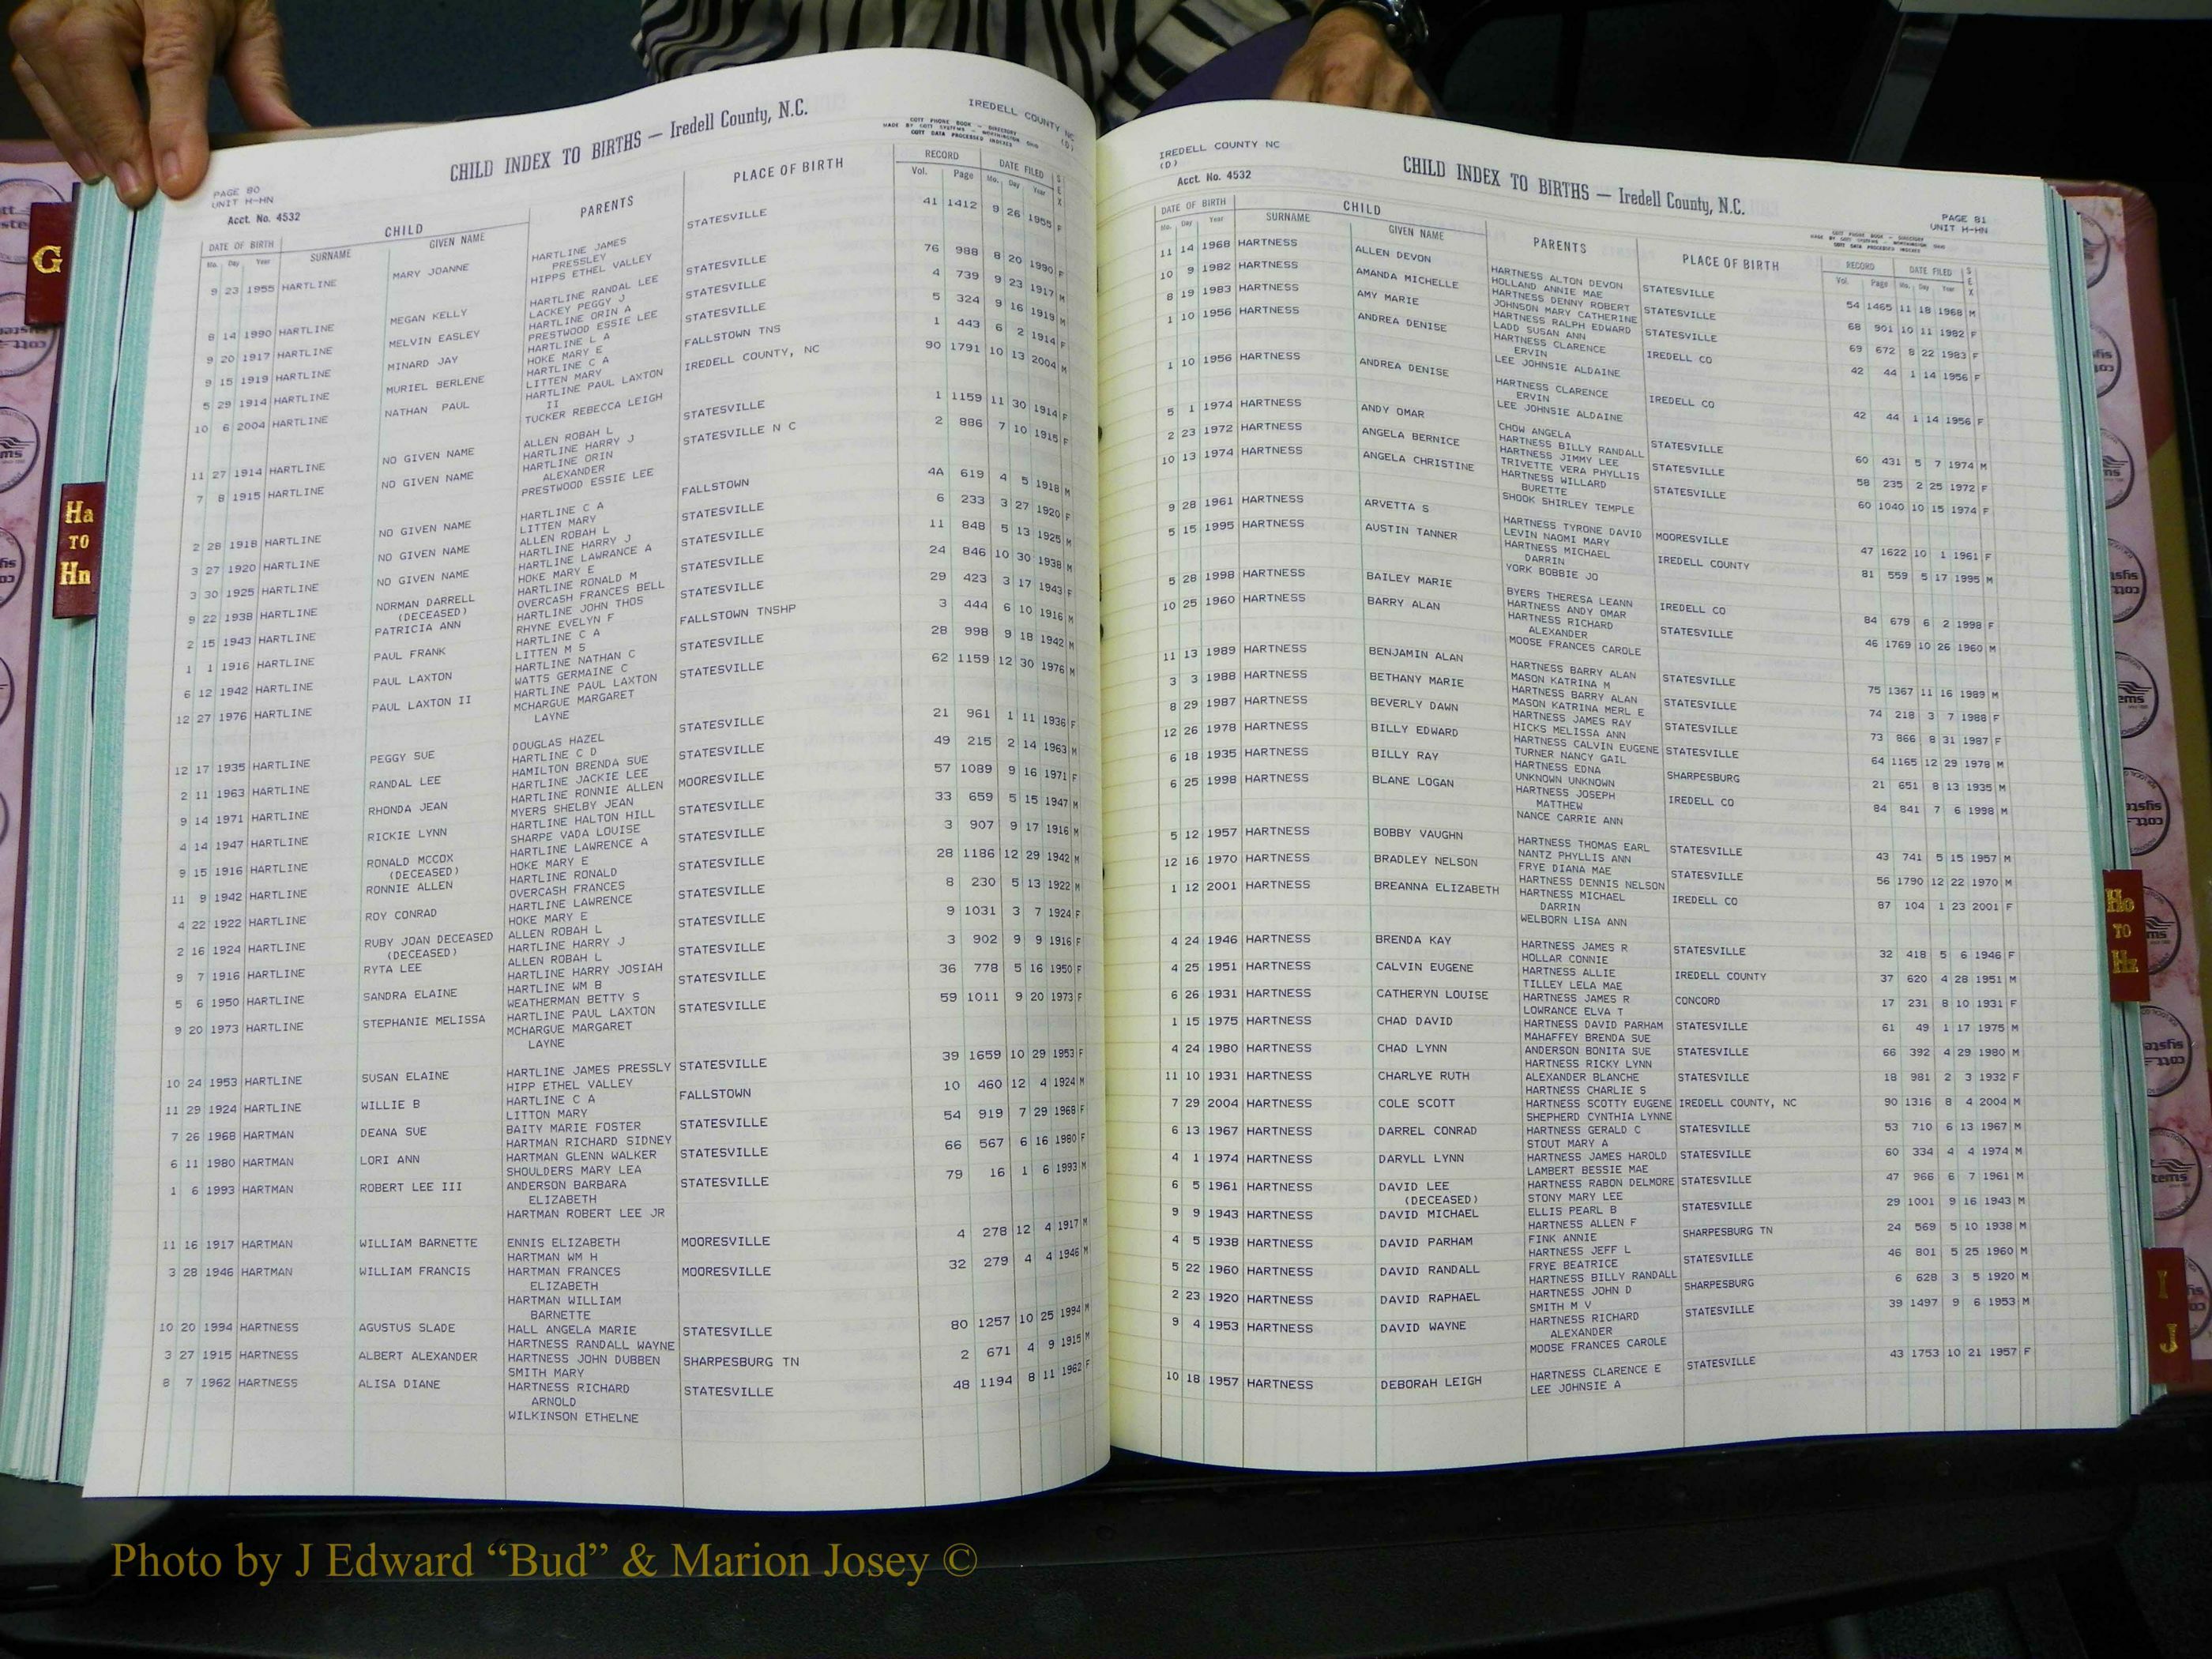 IREDELL COUNTY NC
(D)
CHILD INDEX TO BIRTHS — Iredell County, N.C.
COTT PHONE BOOK - DIRECTORY
MADE BY COTT SYSTEMS - WORTHINGTON OHIO
COTT DATA PROCESSED INDEXES
PAGE 80
UNIT H-HN
Acct. No. 4532
DATE OF BIRTH CHILD PARENTS PLACE OF BIRTH RECORD DATE FILED SEX
Mo. Day Year SURNAME GIVEN NAME Vol. Page Mo. Day Year
9 23 1955 HARTLINE MARY JOANNE HARTLINE JAMES STATESVILLE 41 1412 9 26 1955 F
PRESSLEY
HIPPS ETHEL VALLEY
8 14 1990 HARTLINE MEGAN KELLY HARTLINE RANDAL LEE STATESVILLE 76 988 8 20 1990 F
LACKEY PEGGY J
9 20 1917 HARTLINE MELVIN EASLEY HARTLINE ORIN A STATESVILLE 4 739 9 23 1917 M
PRESTWOOD ESSIE LEE
9 15 1919 HARTLINE MINARD JAY HARTLINE L A STATESVILLE 5 324 9 16 1919 M
HOKE MARY E
5 29 1914 HARTLINE MURIEL BERLENE HARTLINE C A FALLSTOWN TNS 1 443 6 2 1914 F
LITTEN MARY
10 6 2004 HARTLINE NATHAN PAUL HARTLINE PAUL LAXTON IREDELL COUNTY, NC 90 1791 10 13 2004 M
II
TUCKER REBECCA LEIGH
11 27 1914 HARTLINE NO GIVEN NAME ALLEN ROBAH L STATESVILLE 1 1159 11 30 1914 F
HARTLINE HARRY J
7 8 1915 HARTLINE NO GIVEN NAME HARTLINE ORIN STATESVILLE N C 2 886 7 10 1915 F
ALEXANDER
PRESTWOOD ESSIE LEE
2 28 1918 HARTLINE NO GIVEN NAME HARTLINE C A FALLSTOWN 4A 619 4 5 1918 M
LITTEN MARY
3 27 1920 HARTLINE NO GIVEN NAME ALLEN ROBAH L STATESVILLE 6 233 3 27 1920 F
HARTLINE HARRY J
3 30 1925 HARTLINE NO GIVEN NAME HARTLINE LAWRANCE A STATESVILLE 11 848 5 13 1925 M
HOKE MARY E
9 22 1938 HARTLINE NORMAN DARRELL HARTLINE RONALD M STATESVILLE 24 846 10 30 1938 M
(DECEASED) OVERCASH FRANCES BELL
2 15 1943 HARTLINE PATRICIA ANN HARTLINE JOHN THOS STATESVILLE 29 423 3 17 1943 F
RHYNE EVELYN F
1 1 1916 HARTLINE PAUL FRANK HARTLINE C A FALLSTOWN TNSHP 3 444 6 10 1916 M
LITTEN M S
6 12 1942 HARTLINE PAUL LAXTON HARTLINE NATHAN C STATESVILLE 28 998 9 18 1942 M
WATTS GERMAINE C
12 27 1976 HARTLINE PAUL LAXTON II HARTLINE PAUL LAXTON STATESVILLE 62 1159 12 30 1976 M
MCHARGUE MARGARET
LAYNE
12 17 1935 HARTLINE PEGGY SUE DOUGLAS HAZEL STATESVILLE 21 961 1 11 1936 F
HARTLINE C D
2 11 1963 HARTLINE RANDAL LEE HAMILTON BRENDA SUE STATESVILLE 49 215 2 14 1963 M
HARTLINE JACKIE LEE
9 14 1971 HARTLINE RHONDA JEAN HARTLINE RONNIE ALLEN MOORESVILLE 57 1089 9 16 1971 F
MYERS SHELBY JEAN
4 14 1947 HARTLINE RICKIE LYNN HARTLINE HALTON HILL STATESVILLE 33 659 5 15 1947 M
SHARPE VADA LOUISE
9 15 1916 HARTLINE RONALD MCCOX HARTLINE LAWRENCE A STATESVILLE 3 907 9 17 1916 M
(DECEASED) HOKE MARY E
11 9 1942 HARTLINE RONNIE ALLEN HARTLINE RONALD STATESVILLE 28 1186 12 29 1942 M
OVERCASH FRANCES
4 22 1922 HARTLINE ROY CONRAD HARTLINE LAWRENCE STATESVILLE 8 230 5 13 1922 M
HOKE MARY E
2 16 1924 HARTLINE RUBY JOAN DECEASED ALLEN ROBAH L STATESVILLE 9 1031 3 7 1924 F
(DECEASED) HARTLINE HARRY J
9 7 1916 HARTLINE RYTA LEE ALLEN ROBAH L STATESVILLE 3 902 9 9 1916 F
HARTLINE HARRY JOSIAH
5 6 1950 HARTLINE SANDRA ELAINE HARTLINE WM B STATESVILLE 36 778 5 16 1950 F
WEATHERMAN BETTY S
9 20 1973 HARTLINE STEPHANIE MELISSA HARTLINE PAUL LAXTON STATESVILLE 59 1011 9 20 1973 F
MCHARGUE MARGARET
LAYNE
10 24 1953 HARTLINE SUSAN ELAINE HARTLINE JAMES PRESSLY STATESVILLE 39 1659 10 29 1953 F
HIPP ETHEL VALLEY
11 29 1924 HARTLINE WILLIE B HARTLINE C A FALLSTOWN 10 460 12 4 1924 M
LITTON MARY
7 26 1968 HARTMAN DEANA SUE BAITY MARIE FOSTER STATESVILLE 54 919 7 29 1968 F
HARTMAN RICHARD SIDNEY
6 11 1980 HARTMAN LORI ANN HARTMAN GLENN WALKER STATESVILLE 66 567 6 16 1980 F
SHOULDERS MARY LEA
1 6 1993 HARTMAN ROBERT LEE III ANDERSON BARBARA STATESVILLE 79 16 1 6 1993 M
ELIZABETH
HARTMAN ROBERT LEE JR
11 16 1917 HARTMAN WILLIAM BARNETTE ENNIS ELIZABETH MOORESVILLE 4 278 12 4 1917 M
HARTMAN WM H
3 28 1946 HARTMAN WILLIAM FRANCIS HARTMAN FRANCES MOORESVILLE 32 279 4 4 1946 M
ELIZABETH
HARTMAN WILLIAM
BARNETTE
10 20 1994 HARTNESS AGUSTUS SLADE HALL ANGELA MARIE STATESVILLE 80 1257 10 25 1994 M
HARTNESS RANDALL WAYNE
3 27 1915 HARTNESS ALBERT ALEXANDER HARTNESS JOHN DUBBEN SHARPESBURG TN 2 671 4 9 1915 M
SMITH MARY
8 7 1962 HARTNESS ALISA DIANE HARTNESS RICHARD STATESVILLE 48 1194 8 11 1962 F
ARNOLD
WILKINSON ETHELNE
IREDELL COUNTY NC
(D)
Acct. No. 4532
CHILD INDEX TO BIRTHS — Iredell County, N.C.
PAGE 81
UNIT H-HN
COTT PHONE BOOK - DIRECTORY
MADE BY COTT SYSTEMS - WORTHINGTON OHIO
COTT DATA PROCESSED INDEXES
DATE OF BIRTH CHILD PARENTS PLACE OF BIRTH RECORD DATE FILED SEX
Mo. Day Year SURNAME GIVEN NAME Vol. Page Mo. Day Year
11 14 1968 HARTNESS ALLEN DEVON HARTNESS ALTON DEVON STATESVILLE 54 1465 11 18 1968 M
HOLLAND ANNIE MAE
10 9 1982 HARTNESS AMANDA MICHELLE HARTNESS DENNY ROBERT STATESVILLE 68 901 10 11 1982 F
JOHNSON MARY CATHERINE
8 19 1983 HARTNESS AMY MARIE HARTNESS RALPH EDWARD STATESVILLE 69 672 8 22 1983 F
LADD SUSAN ANN
1 10 1956 HARTNESS ANDREA DENISE HARTNESS CLARENCE IREDELL CO 42 44 1 14 1956 F
ERVIN
LEE JOHNSIE ALDAINE
1 10 1956 HARTNESS ANDREA DENISE HARTNESS CLARENCE IREDELL CO 42 44 1 14 1956 F
ERVIN
LEE JOHNSIE ALDAINE
5 1 1974 HARTNESS ANDY OMAR CHOW ANGELA STATESVILLE 60 431 5 7 1974 M
HARTNESS BILLY RANDALL
2 23 1972 HARTNESS ANGELA BERNICE HARTNESS JIMMY LEE STATESVILLE 58 235 2 25 1972 F
TRIVETTE VERA PHYLLIS
10 13 1974 HARTNESS ANGELA CHRISTINE HARTNESS WILLARD STATESVILLE 60 1040 10 15 1974 F
BURETTE
SHOOK SHIRLEY TEMPLE
9 28 1961 HARTNESS ARVETTA S HARTNESS TYRONE DAVID MOORESVILLE 47 1622 10 1 1961 F
LEVIN NAOMI MARY
5 15 1995 HARTNESS AUSTIN TANNER HARTNESS MICHAEL IREDELL COUNTY 81 559 5 17 1995 M
DARRIN
YORK BOBBIE JO
5 28 1998 HARTNESS BAILEY MARIE BYERS THERESA LEANN IREDELL CO 84 679 6 2 1998 F
HARTNESS ANDY OMAR
10 25 1960 HARTNESS BARRY ALAN HARTNESS RICHARD STATESVILLE 46 1769 10 26 1960 M
ALEXANDER
MOOSE FRANCES CAROLE
11 13 1989 HARTNESS BENJAMIN ALAN HARTNESS BARRY ALAN STATESVILLE 75 1367 11 16 1989 M
MASON KATRINA M
3 3 1988 HARTNESS BETHANY MARIE HARTNESS BARRY ALAN STATESVILLE 74 218 3 7 1988 F
MASON KATRINA MERL E
8 29 1987 HARTNESS BEVERLY DAWN HARTNESS JAMES RAY STATESVILLE 73 866 8 31 1987 F
HICKS MELISSA ANN
12 26 1978 HARTNESS BILLY EDWARD HARTNESS CALVIN EUGENE STATESVILLE 64 1165 12 29 1978 M
TURNER NANCY GAIL
6 18 1935 HARTNESS BILLY RAY HARTNESS EDNA SHARPESBURG 21 651 8 13 1935 M
UNKNOWN UNKNOWN
6 25 1998 HARTNESS BLANE LOGAN HARTNESS JOSEPH IREDELL CO 84 841 7 6 1998 M
MATTHEW
NANCE CARRIE ANN
5 12 1957 HARTNESS BOBBY VAUGHN HARTNESS THOMAS EARL STATESVILLE 43 741 5 15 1957 M
NANTZ PHYLLIS ANN
12 16 1970 HARTNESS BRADLEY NELSON FRYE DIANA MAE STATESVILLE 56 1790 12 22 1970 M
HARTNESS DENNIS NELSON
1 12 2001 HARTNESS BREANNA ELIZABETH HARTNESS MICHAEL IREDELL CO 87 104 1 23 2001 F
DARRIN
WELBORN LISA ANN
4 24 1946 HARTNESS BRENDA KAY HARTNESS JAMES R STATESVILLE 32 418 5 6 1946 F
HOLLAR CONNIE
4 25 1951 HARTNESS CALVIN EUGENE HARTNESS ALLIE IREDELL COUNTY 37 620 4 28 1951 M
TILLEY LELA MAE
6 26 1931 HARTNESS CATHERYN LOUISE HARTNESS JAMES R CONCORD 17 231 8 10 1931 F
LOWRANCE ELVA T
1 15 1975 HARTNESS CHAD DAVID HARTNESS DAVID PARHAM STATESVILLE 61 49 1 17 1975 M
MAHAFFEY BRENDA SUE
4 24 1980 HARTNESS CHAD LYNN ANDERSON BONITA SUE STATESVILLE 66 392 4 29 1980 M
HARTNESS RICKY LYNN
11 10 1931 HARTNESS CHARLYE RUTH ALEXANDER BLANCHE STATESVILLE 18 981 2 3 1932 F
HARTNESS CHARLIE S
7 29 2004 HARTNESS COLE SCOTT HARTNESS SCOTTY EUGENE IREDELL COUNTY, NC 90 1316 8 4 2004 M
SHEPHERD CYNTHIA LYNNE
6 13 1967 HARTNESS DARREL CONRAD HARTNESS GERALD C STATESVILLE 53 710 6 13 1967 M
STOUT MARY A
4 1 1974 HARTNESS DARYLL LYNN HARTNESS JAMES HAROLD STATESVILLE 60 334 4 4 1974 M
LAMBERT BESSIE MAE
6 5 1961 HARTNESS DAVID LEE HARTNESS RABON DELMORE STATESVILLE 47 966 6 7 1961 M
(DECEASED) STONY MARY LEE
9 9 1943 HARTNESS DAVID MICHAEL ELLIS PEARL B STATESVILLE 29 1001 9 16 1943 M
HARTNESS ALLEN F
4 5 1938 HARTNESS DAVID PARHAM FINK ANNIE SHARPESBURG TN 24 569 5 10 1938 M
HARTNESS JEFF L
5 22 1960 HARTNESS DAVID RANDALL FRYE BEATRICE STATESVILLE 46 801 5 25 1960 M
HARTNESS BILLY RANDALL
2 23 1920 HARTNESS DAVID RAPHAEL HARTNESS JOHN D SHARPESBURG 6 628 3 5 1920 M
SMITH M V
9 4 1953 HARTNESS DAVID WAYNE HARTNESS RICHARD STATESVILLE 39 1497 9 6 1953 M
ALEXANDER
MOOSE FRANCES CAROLE
10 18 1957 HARTNESS DEBORAH LEIGH HARTNESS CLARENCE E STATESVILLE 43 1753 10 21 1957 F
LEE JOHNSIE A
G
Ha
TO
Hn
Ho
TO
Hz
I
J
Photo by J Edward “Bud” & Marion Josey ©